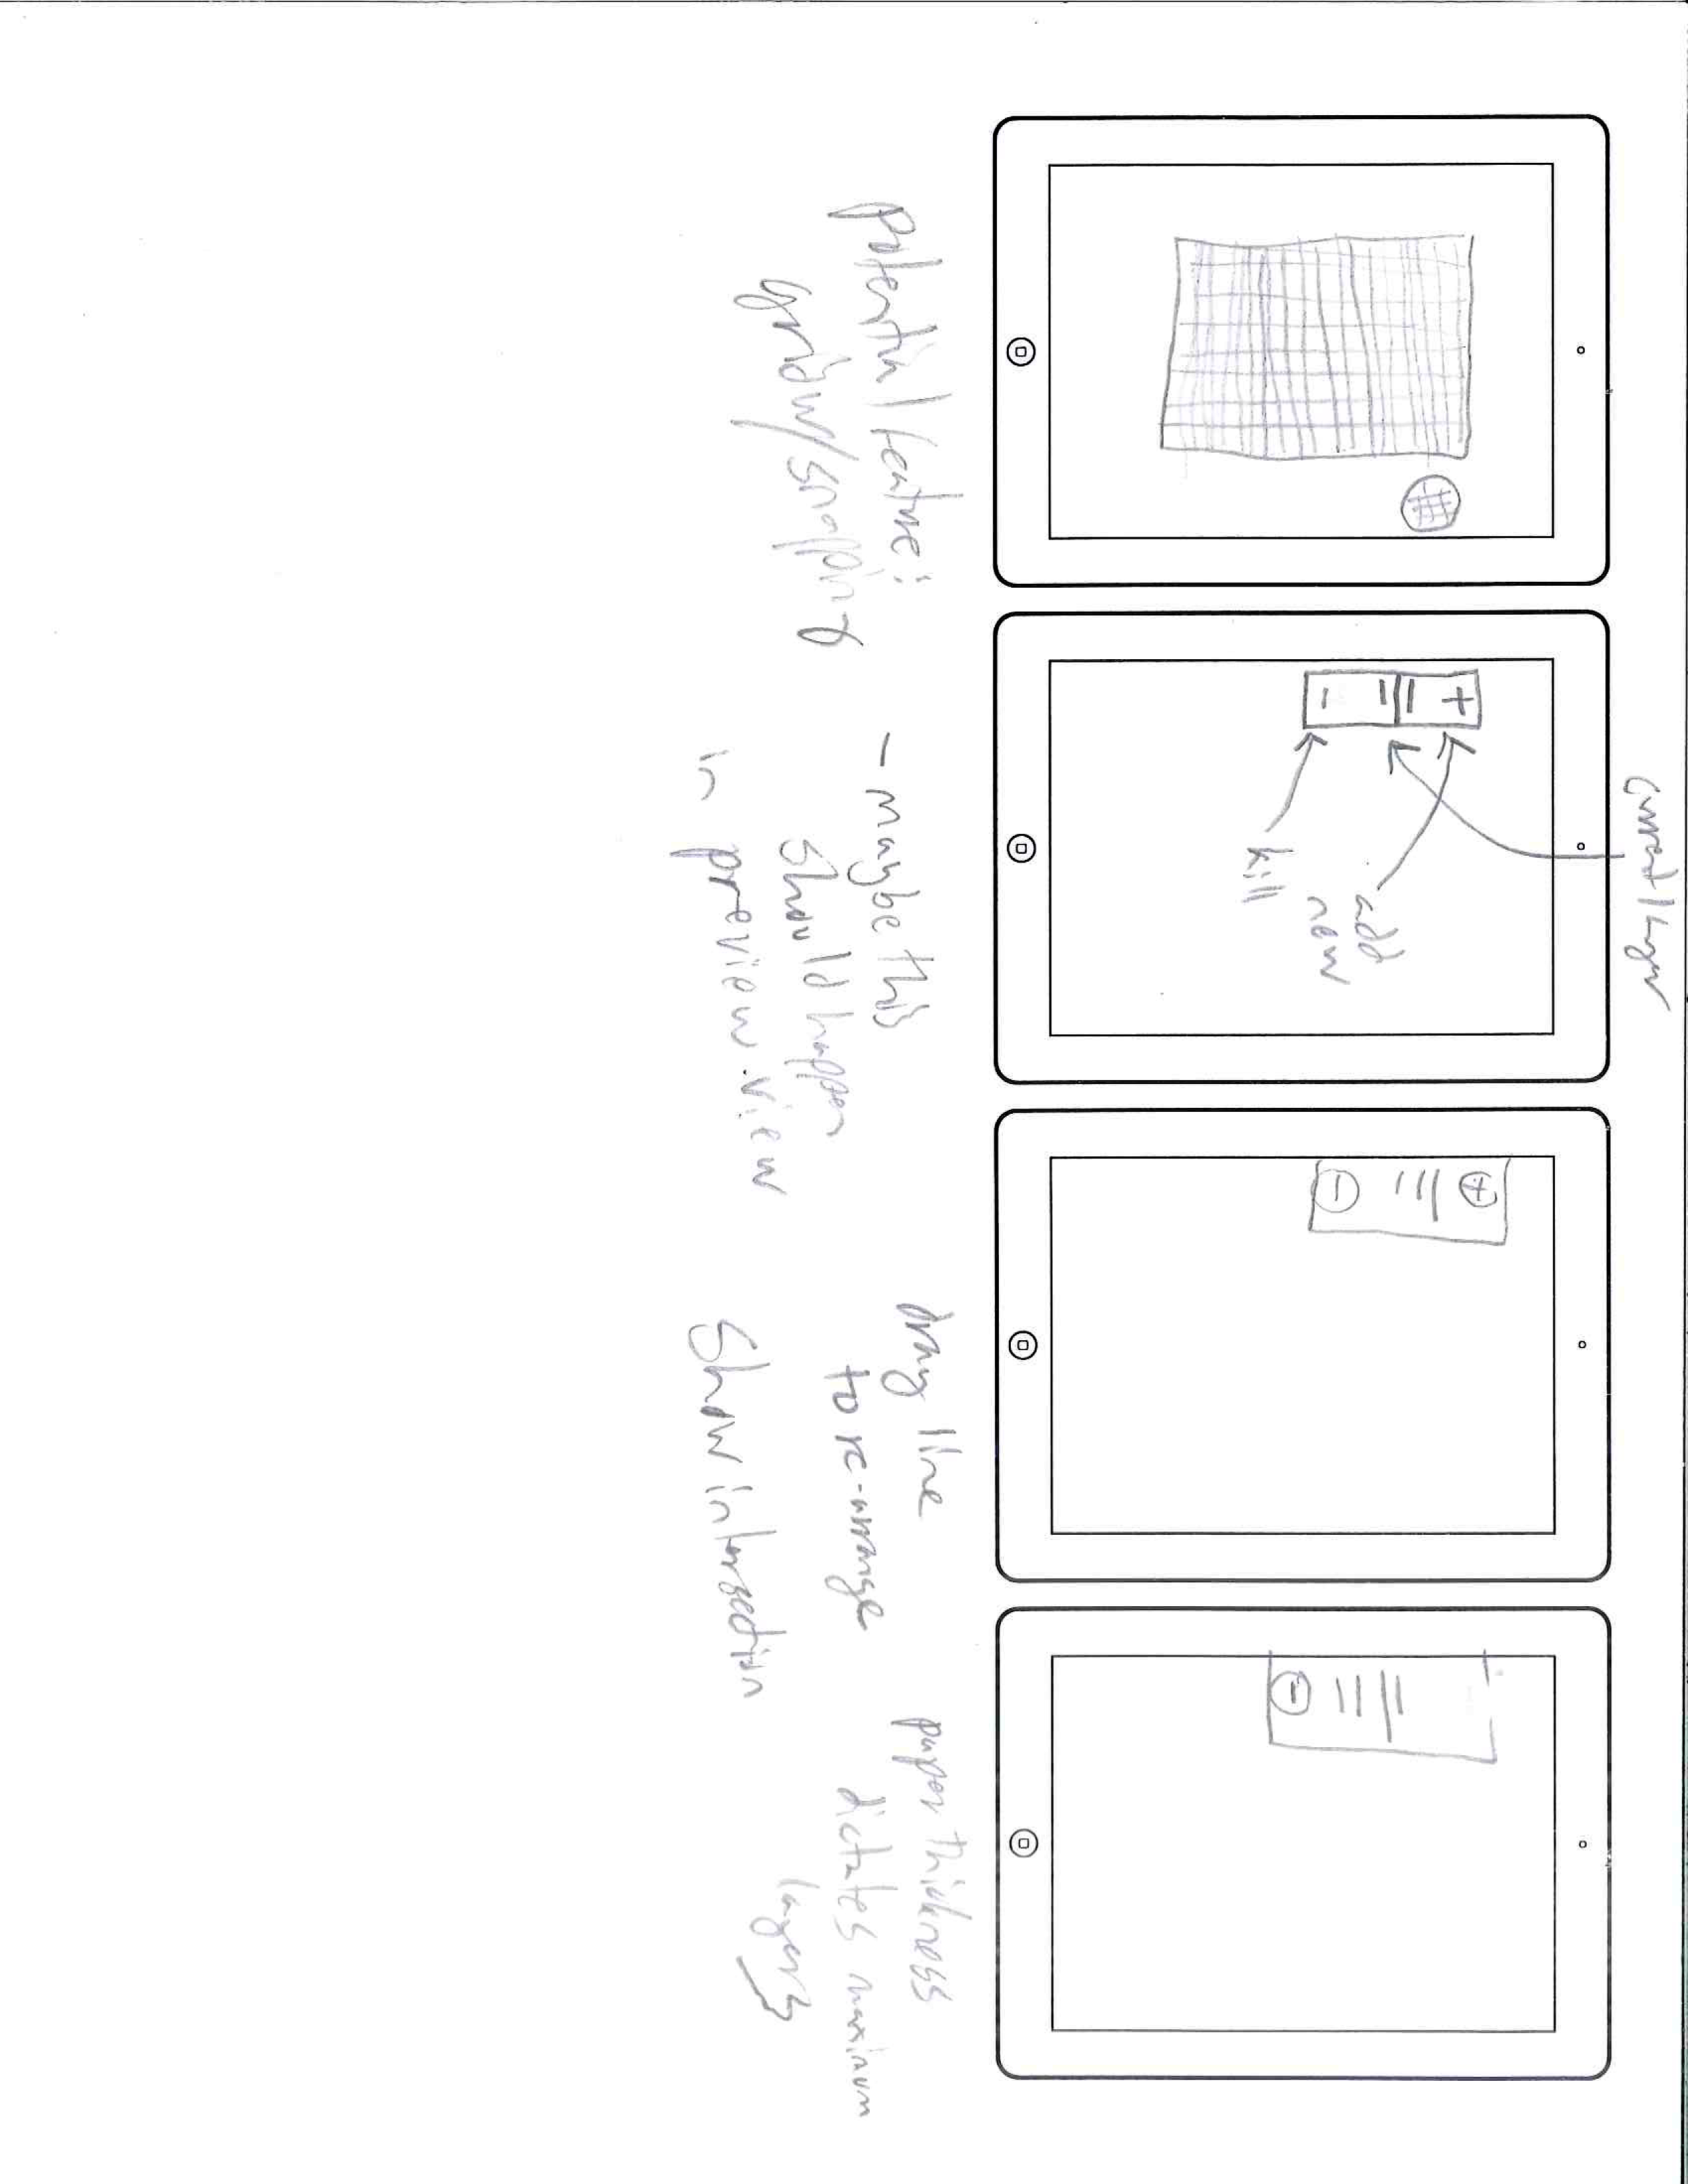 potential feature:
grid w/ snapping
current layer
add
new
kill
- maybe this
should happen
in preview view
drag line
to re-arrange
Show intersection
paper thickness
dictates maximum
layers